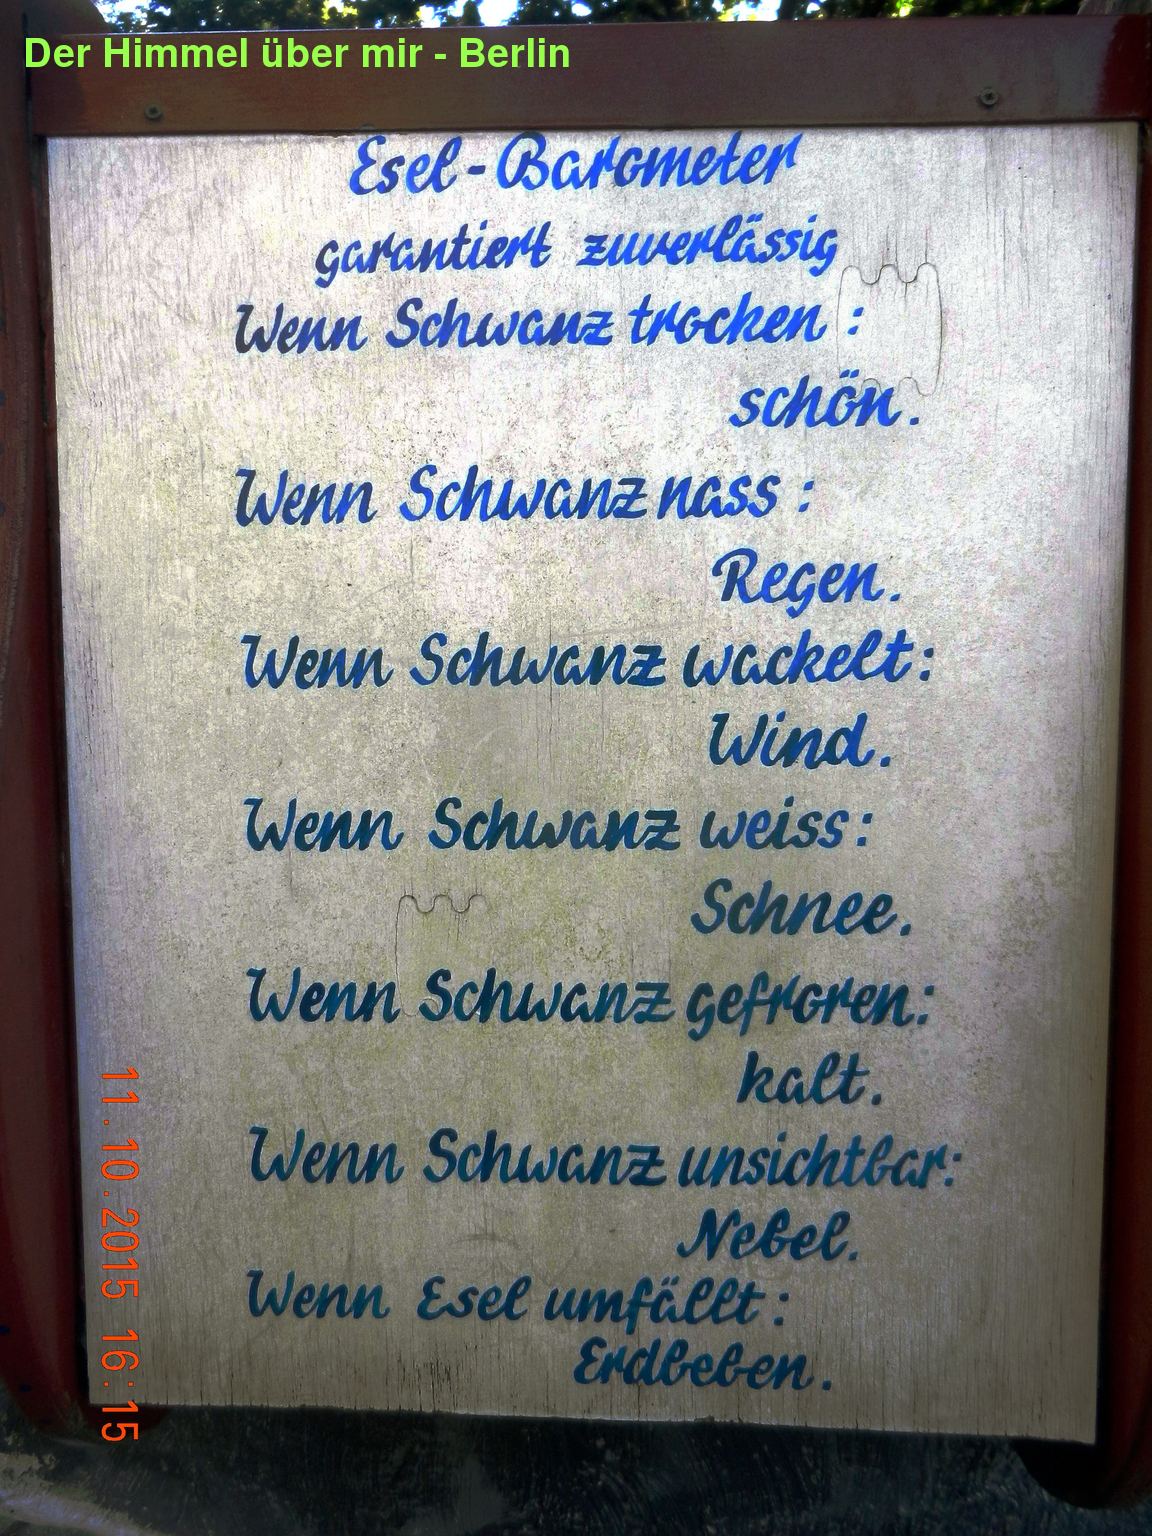 Der Himmel über mir - Berlin
Esel-Barometer
garantiert zuverlässig
Wenn Schwanz trocken :
schön.
Wenn Schwanz nass :
Regen.
Wenn Schwanz wackelt:
Wind.
Wenn Schwanz weiss:
Schnee.
Wenn Schwanz gefroren:
kalt.
Wenn Schwanz unsichtbar:
Nebel.
Wenn Esel umfällt :
Erdbeben.
11.10.2015 16:15